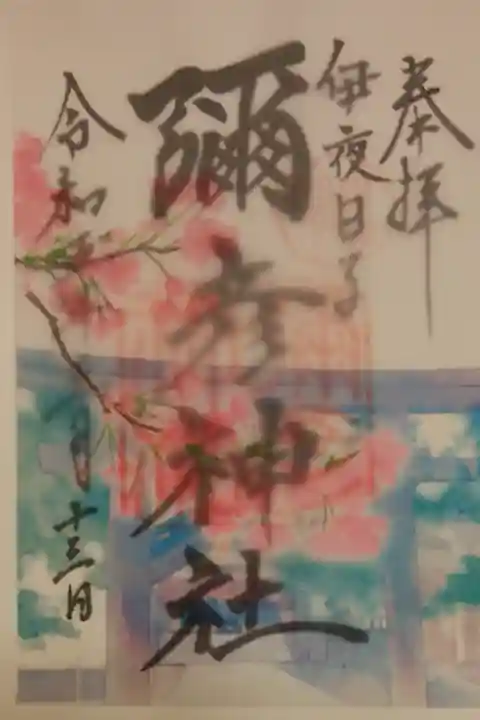 奉拝
伊夜日子
彌彦神社
令和 月十三日